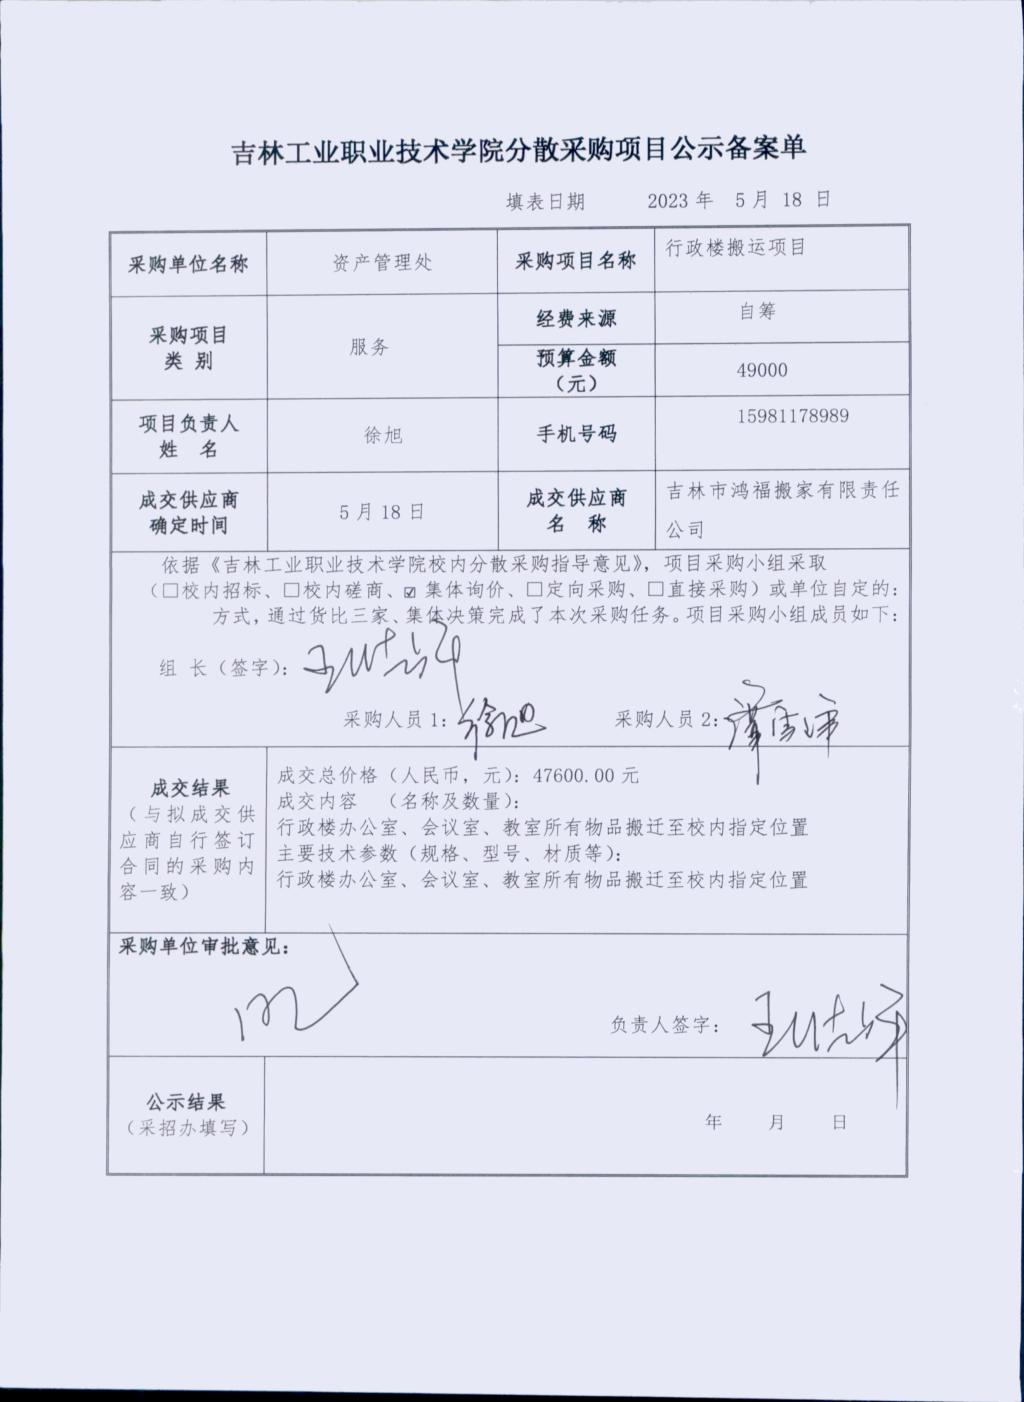 吉林工业职业技术学院分散采购项目公示备案单
填表日期 2023 年 5 月 18 日
采购单位名称 资产管理处 采购项目名称 行政楼搬运项目
采购项目
类 别
服务
经费来源 自筹
预算金额
（元）
49000
项目负责人
姓 名
徐旭
手机号码 15981178989
成交供应商
确定时间
5 月 18 日
成交供应商
名 称
吉林市鸿福搬家有限责任
公司
依据《吉林工业职业技术学院校内分散采购指导意见》，项目采购小组采取
（□校内招标、□校内磋商、☑ 集体询价、□定向采购、□直接采购）或单位自定的：
方式，通过货比三家、集体决策完成了本次采购任务。项目采购小组成员如下：
组 长（签字）：
采购人员 1： 徐旭 采购人员 2：
成交结果
（与拟成交供
应商自行签订
合同的采购内
容一致）
成交总价格（人民币，元）：47600.00 元
成交内容 （名称及数量）：
行政楼办公室、会议室、教室所有物品搬迁至校内指定位置
主要技术参数（规格、型号、材质等）：
行政楼办公室、会议室、教室所有物品搬迁至校内指定位置
采购单位审批意见：
负责人签字：
公示结果
（采招办填写）
年 月 日